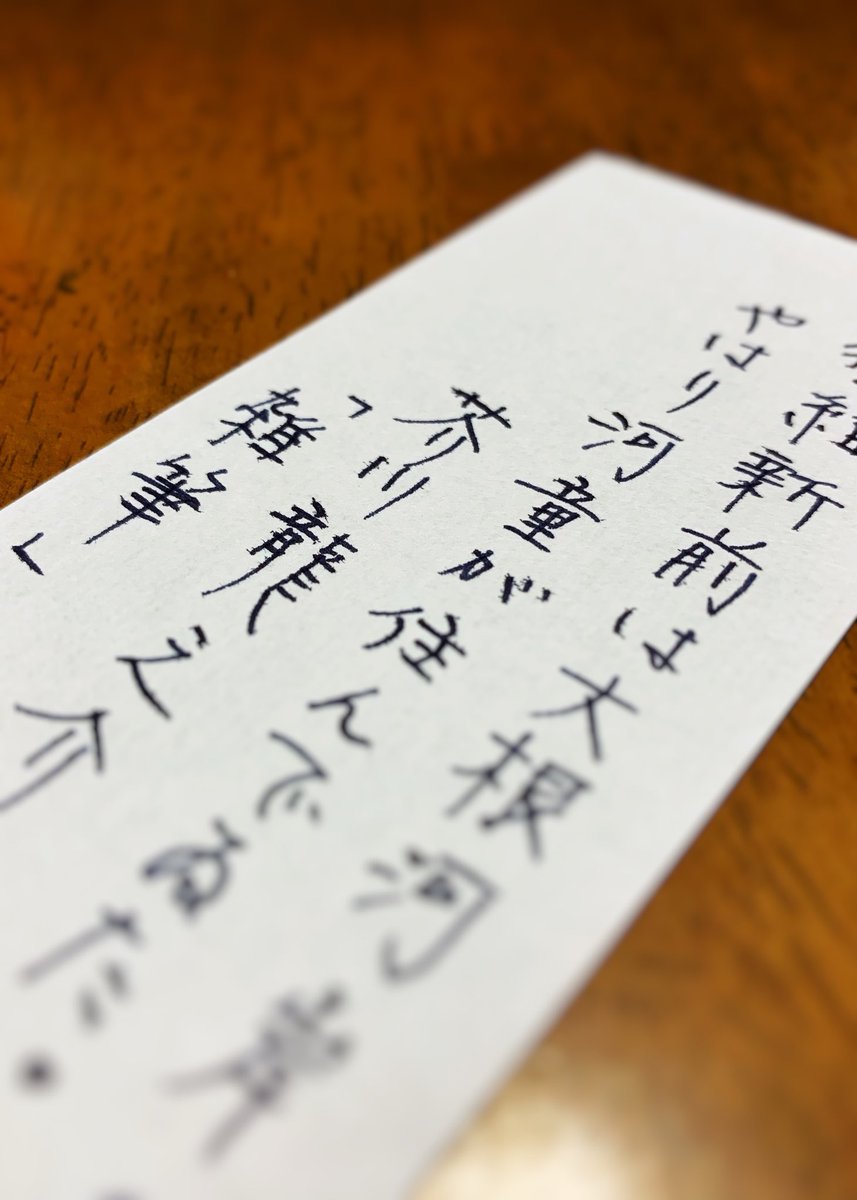 維新前は大根河岸
やはり河童が住んでるだ・
芥川龍之介
「雑筆」